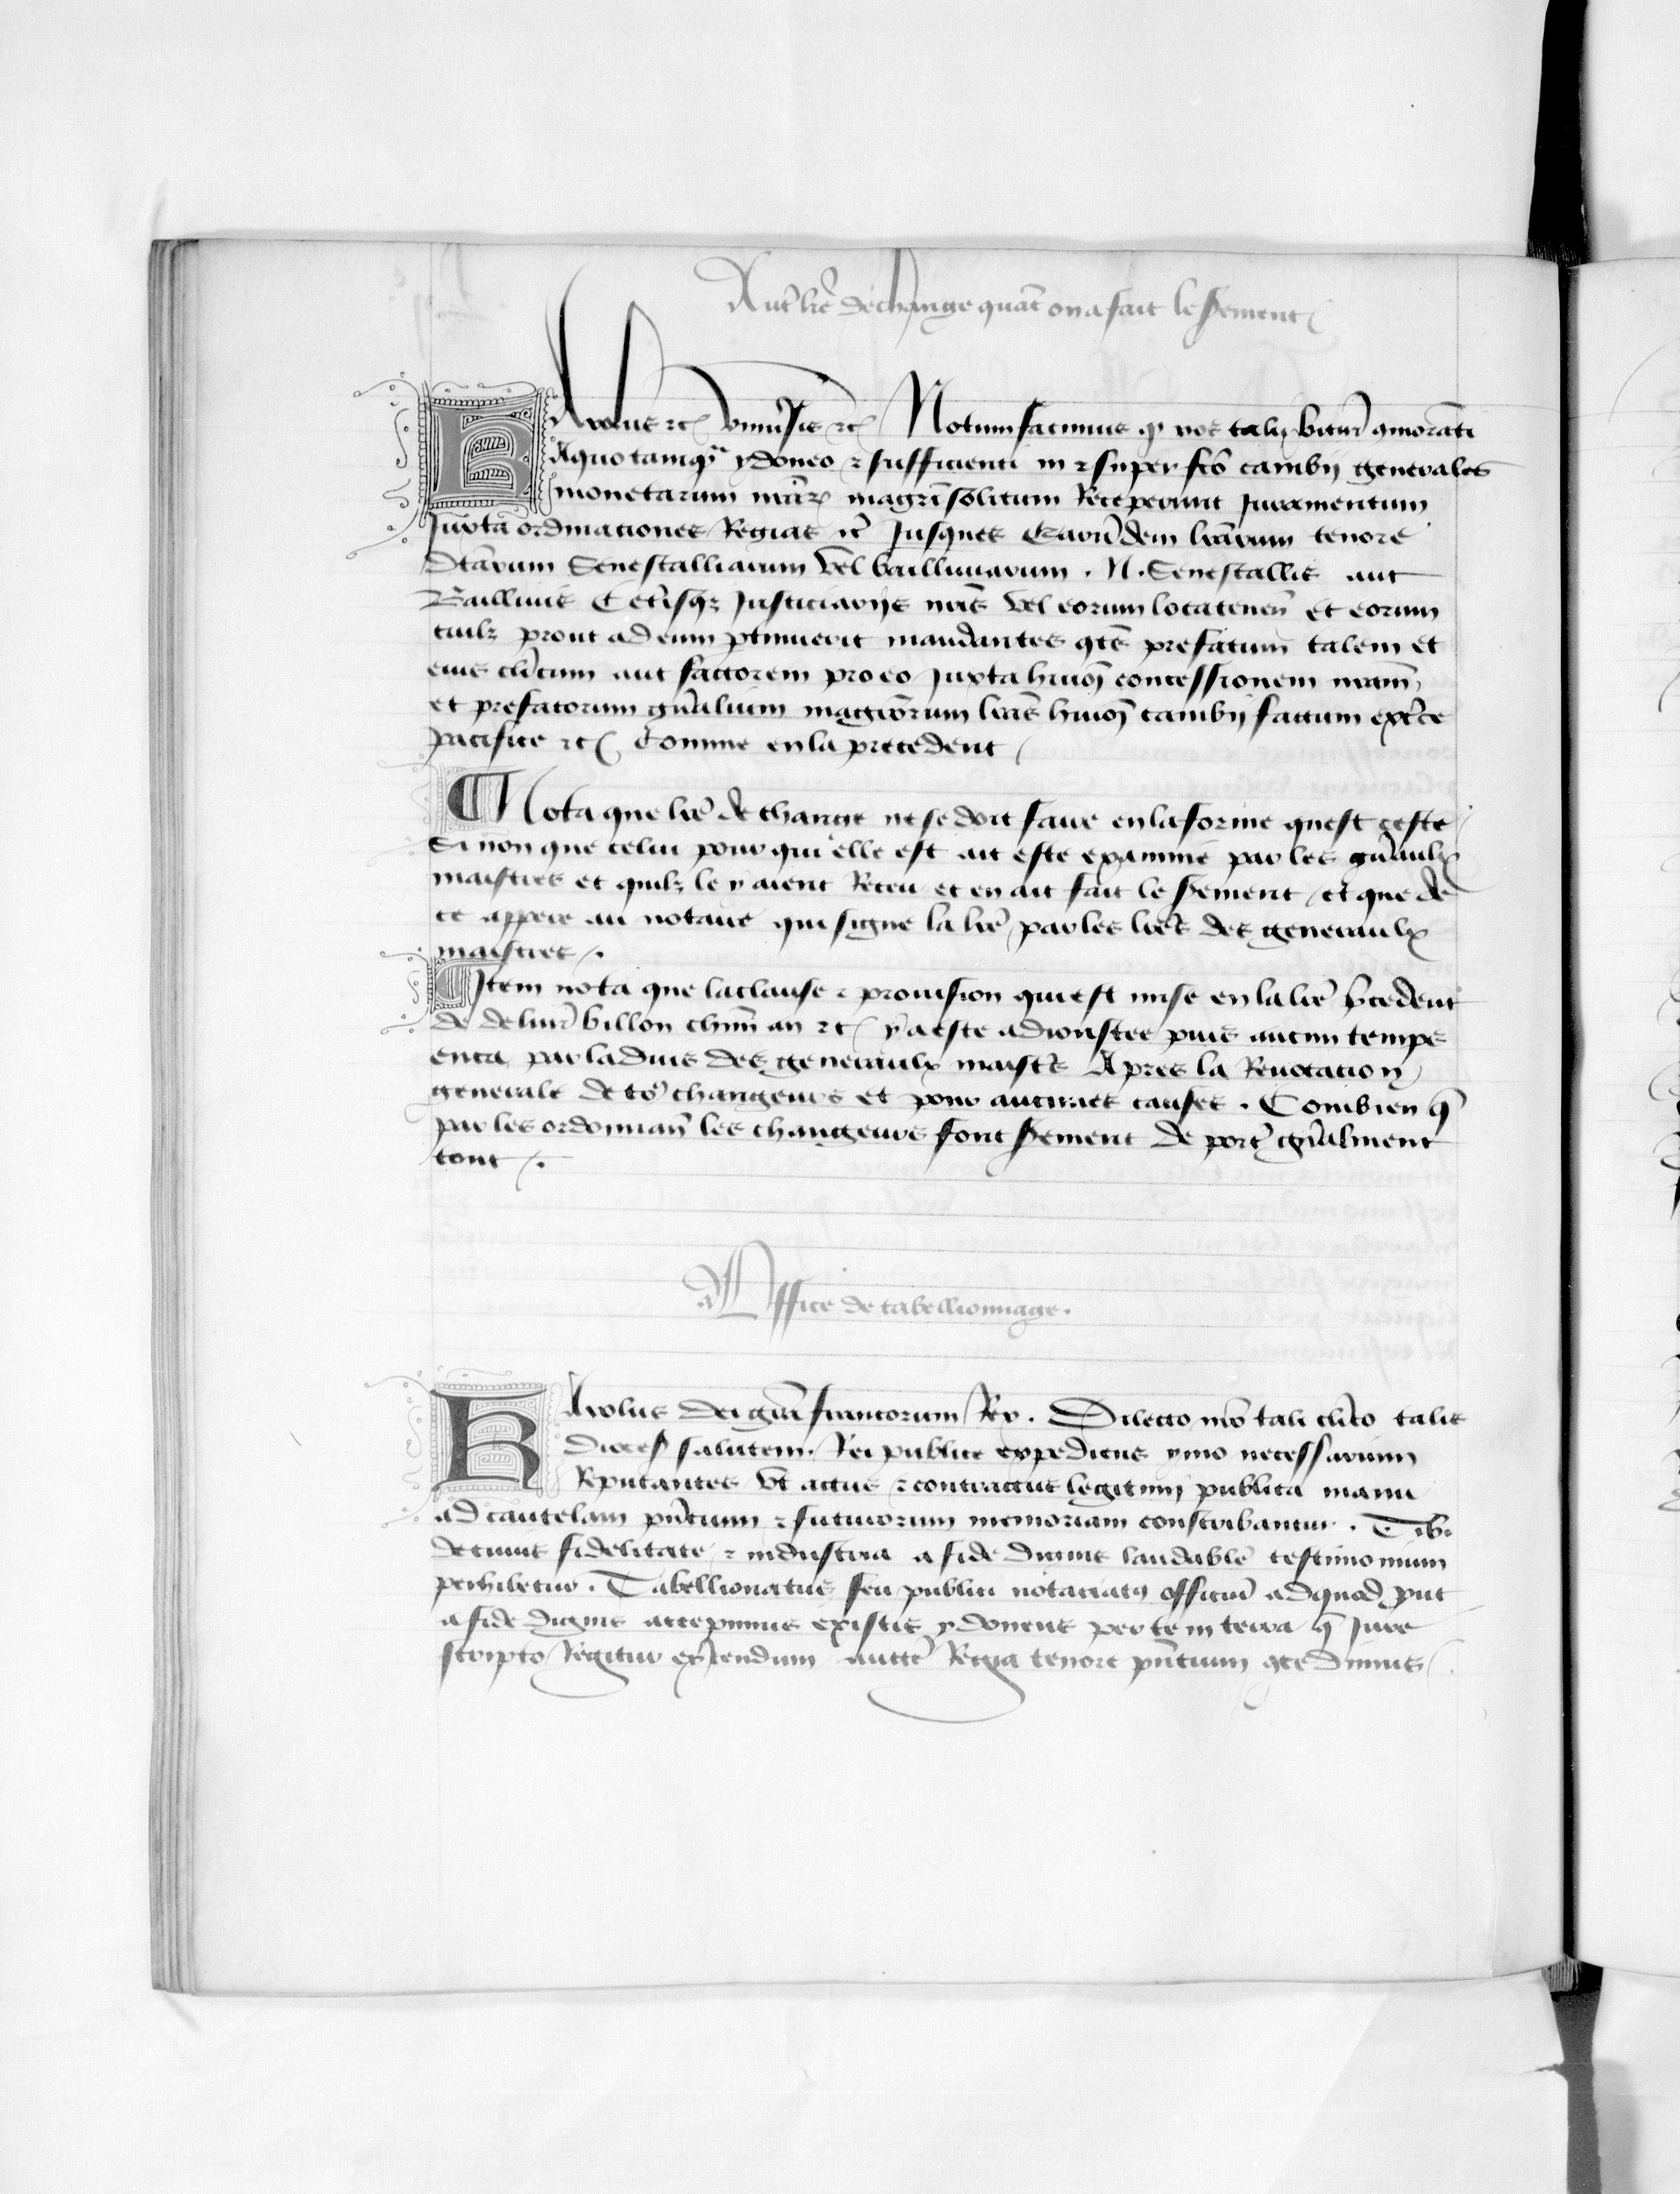 Autr̃ lrẽ de change quãt on a fait le s̃ement
Karolus ⁊c̃ uniũsis ⁊c̃ Notum facimus ꝙ nos tali bituẽ ɔmorãti
A quo tamqᵃ ydoneo ⁊ sufficienti in ⁊ super fc̃o cambij generales
monetarum nrãꝝ magrĩ solitum Receperunt Juramentum
Juxta ordinationes Regias ⁊c̃ Jusques Earũdem lrãrum tenore
dc̃arum Senescalliarum vel bailliuiarum . N . Senescallis aut
Bailliuis Cet̃isqꝫ Justiciarijs nrĩs vel eorum locatenen̄ et eorum
cuilꝫ prout ad eum ptinuerit mandantes qtẽs prefatum talem et
eius clr̃icum aut factorem pro eo Juxta huiõi concessionem nrãm
et prefatorum gñalium magrõrum lrãs huiõi cambij factum exc̃e
pacifice ⁊c̃ Comme en la precedent
Nota que lrẽ de change ne se doit faire en la forme quest ceste
Si non que celui pour qui elle est ait este examine par les gñaulx
maistres et quilz le y aient Receu et en ait fait le s̃ement et que de
ce appere au notaire qui signe la lrẽ par les lrẽs des generaulx
maistres .
Item nota que la clause ⁊ prouision qui est mise en la lrẽ p̃cedent
de deliur̃ billon chũn an ⁊c̃ y a este adioustee puis aucun temps
enca par laduis des generaulx maistr̃s Apres la Reuocacion
generale de to⁹ changeurs et pour aucunes causes . Combien q̃
par les ordonnan̄ les changeurs font s̃ement de port̃ gñalment
tout .
Office de tabellionnage .
Karolus dei grã francorum Rex . Dilecto nrõ tali clr̃ico talis
dioces̃ salutem . Rei publice expediens ymo necessarium
Reputantes vt actus ⁊ contractus legitimi publica manu
ad cautelam pñtium ⁊ futurorum memoriam conscribantur . Tibi
de cuius fidelitate ⁊ industria a fide dignis laudabile testimonium
perhibetur . Tabellionatus seu publici notariatꝰ officiũ ad quod put
a fide dignis accepimus existis ydoneus per te in terra q̃ Jure
scripto Regitur ex̃cendum auctẽ Regia tenore pñtium ɔcedimus